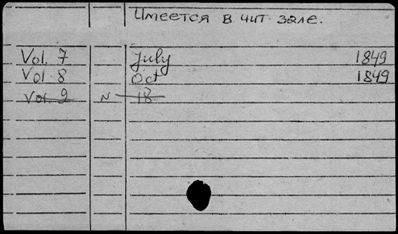 Имеется в чит. зале.
Vol. 7 July 1849
Vol. 8 Oct 1849
Vol. 9 N 18